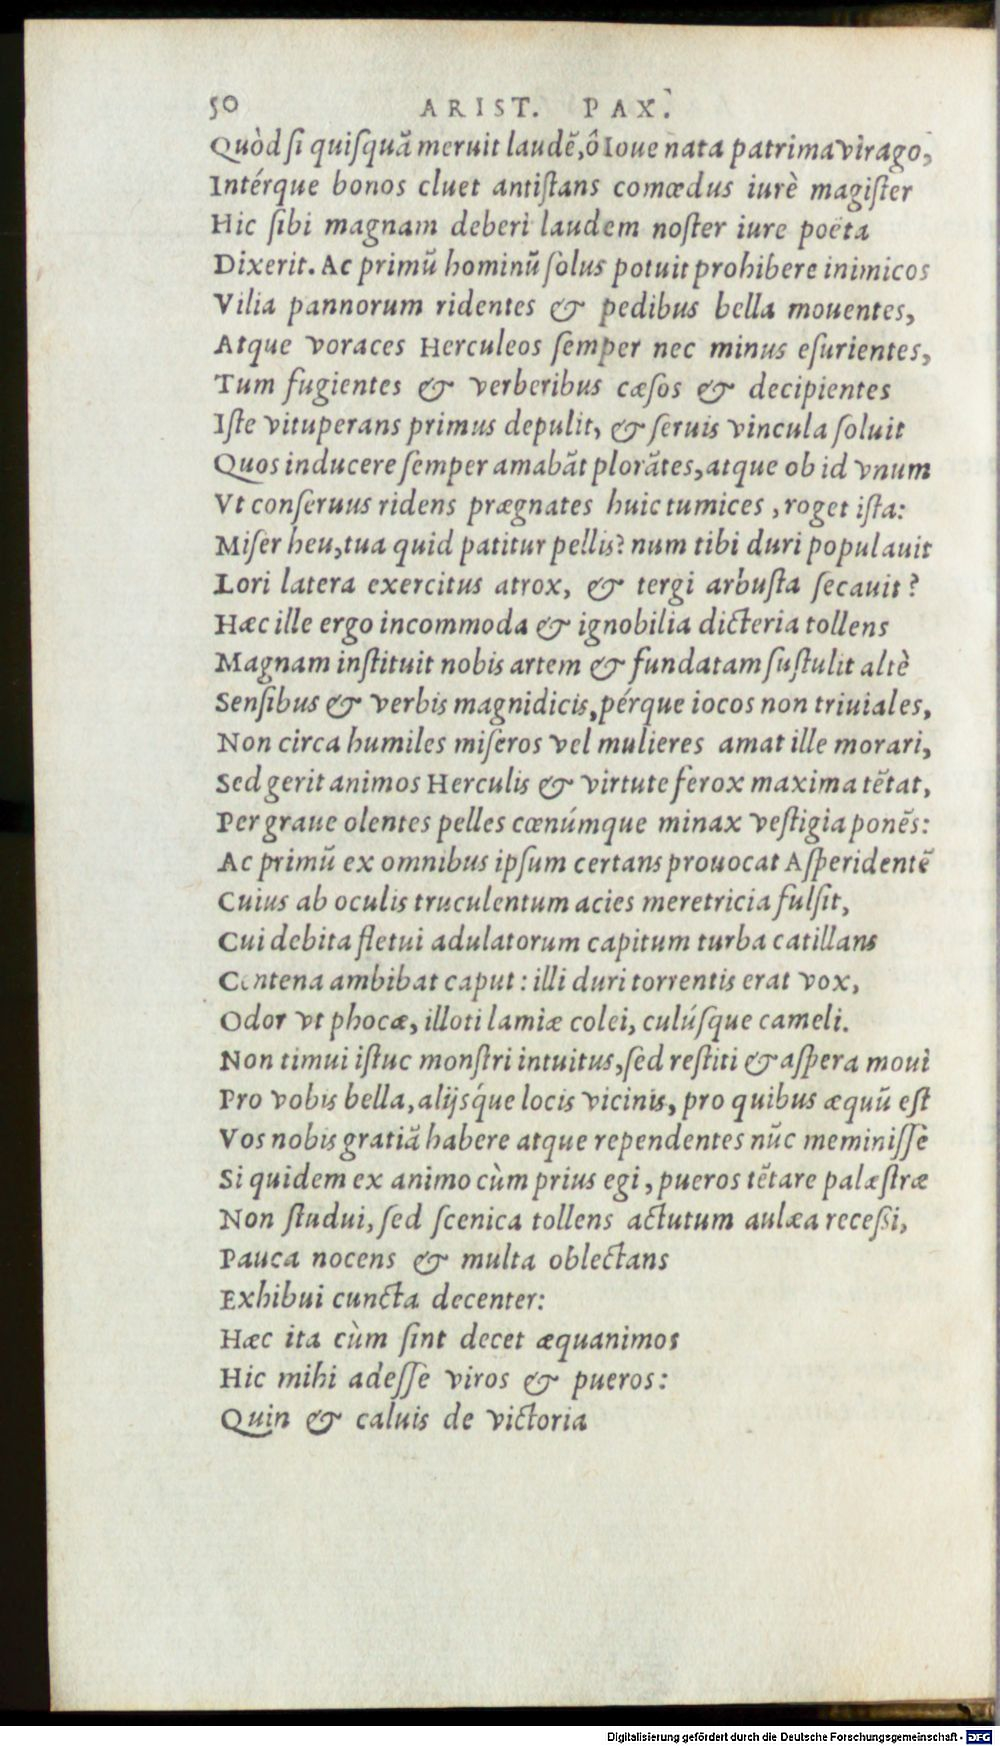 50 ARIST. PAX.
Quòd ſi quiſquã meruit laudẽ, ô Ioue nata patrima virago,
Intérque bonos cluet antiſtans comœdus iurè magiſter
Hic ſibi magnam deberi laudem noſter iure poëta
Dixerit. Ac primũ hominũ ſolus potuit prohibere inimicos
Vilia pannorum ridentes & pedibus bella mouentes,
Atque voraces Herculeos ſemper nec minus eſurientes,
Tum fugientes & verberibus cæſos & decipientes
Iſte vituperans primus depulit, & ſeruis vincula ſoluit
Quos inducere ſemper amabãt plorãtes, atque ob id vnum
Vt conſeruus ridens prægnates huic tumices, roget iſta:
Miſer heu, tua quid patitur pellis? num tibi duri populauit
Lori latera exercitus atrox, & tergi arbuſta ſecauit?
Hæc ille ergo incommoda & ignobilia dicteria tollens
Magnam inſtituit nobis artem & fundatam ſuſtulit altè
Senſibus & verbis magnidicis, pérque iocos non triuiales,
Non circa humiles miſeros vel mulieres amat ille morari,
Sed gerit animos Herculis & virtute ferox maxima tẽtat,
Per graue olentes pelles cœnúmque minax veſtigia ponẽs:
Ac primũ ex omnibus ipſum certans prouocat Aſperidentẽ
Cuius ab oculis truculentum acies meretricia fulſit,
Cui debita fletui adulatorum capitum turba catillans
Centena ambibat caput: illi duri torrentis erat vox,
Odor vt phocæ, illoti lamiæ colei, culúſque cameli.
Non timui iſtuc monſtri intuitus, ſed reſtiti & aſpera moui
Pro vobis bella, alijsque locis vicinis, pro quibus æquũ eſt
Vos nobis gratiã habere atque rependentes nũc meminiſſe
Si quidem ex animo cùm prius egi, pueros tẽtare palæſtræ
Non ſtudui, ſed ſcenica tollens actutum aulæa receßi,
Pauca nocens & multa oblectans
Exhibui cuncta decenter:
Hæc ita cùm ſint decet æquanimos
Hic mihi adeſſe viros & pueros:
Quin & caluis de victoria
Digitalisierung gefördert durch die Deutsche Forschungsgemeinschaft - DFG